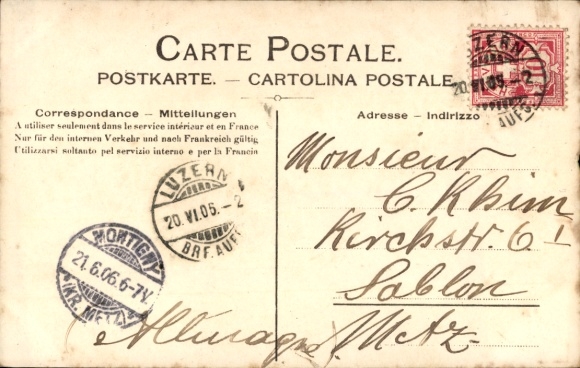 CARTE POSTALE.
POSTKARTE. — CARTOLINA POSTALE.
Correspondance — Mitteilungen
A utiliser seulement dans le service intérieur et en France
Nur für den internen Verkehr und nach Frankreich gültig
Utilizzarsi soltanto pel servizio interno e per la Francia
Adresse — Indirizzo
LUZERN
20.VI.06.-2
BRF.AUFG
LUZERN
20.VI.06.-2
BRF.AUFG
10
MONTIGNY
21.6.06.6-7V.
(KR. METZ)
Monsieur
C. Khim
Kirchstr. 61
Sablon
Allemagne Metz